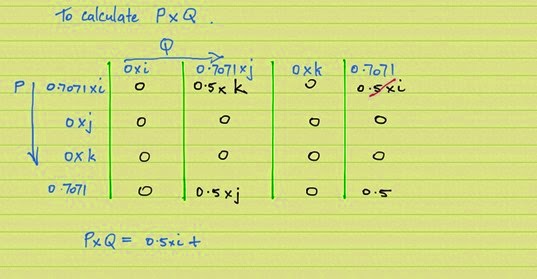 To calculate P x Q .
Q
0xi 0.7071xj 0xk 0.7071
P 0.7071xi 0 0.5xk 0 0.5xi
0xj 0 0 0 0
0xk 0 0 0 0
0.7071 0 0.5xj 0 0.5
PxQ = 0.5xi +